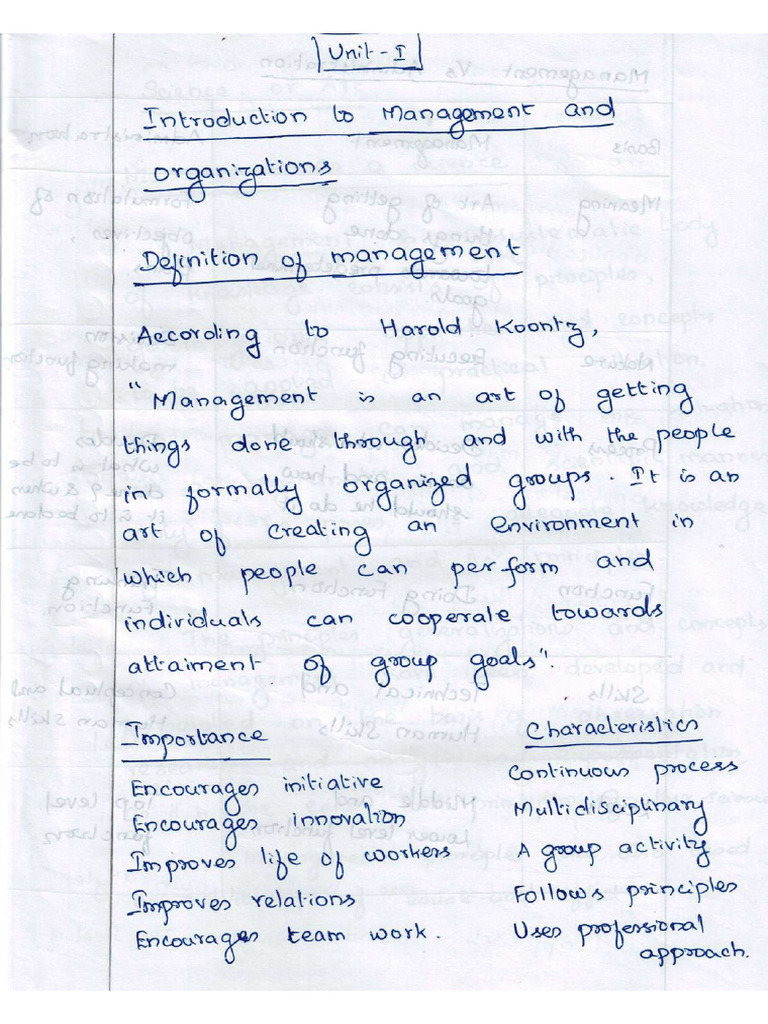 Unit - I
Introduction to Management and
organizations
Definition of management
According to Harold Koontz,
"Management is an art of getting
things done through and with the people
in formally organized groups. It is an
art of creating an environment in
which people can perform and
individuals can cooperate towards
attaiment of group goals".
Importance
Encourages initiative
Encourages innovation
Improves life of workers
Improves relations
Encourages team work.
Characteristics
Continuous process
Multidisciplinary
A group activity
Follows principles
Uses professional
approach.